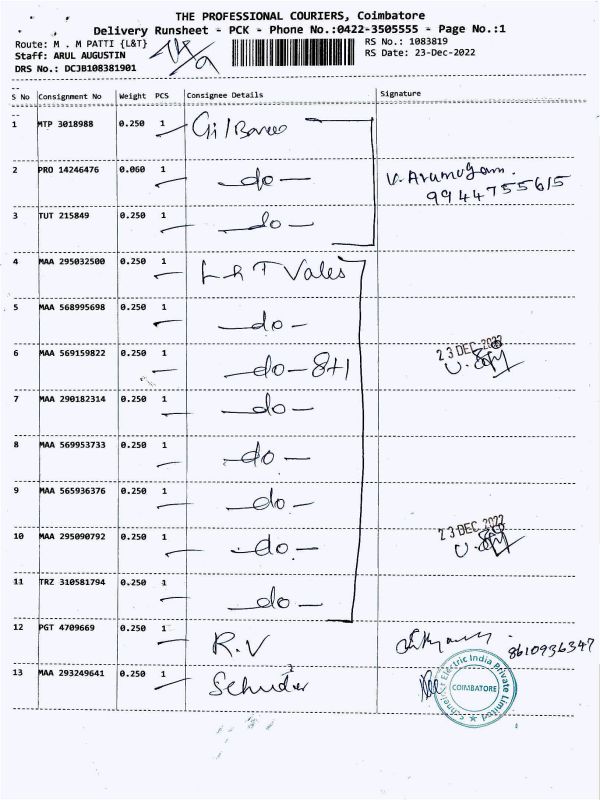 THE PROFESSIONAL COURIERS, Coimbatore
Delivery Runsheet - PCK - Phone No.:0422-3505555 - Page No.:1
Route: M . M PATTI {L&T} RS No.: 1083819
Staff: ARUL AUGUSTIN RS Date: 23-Dec-2022
DRS No.: DCJB108381901
S No Consignment No Weight PCS Consignee Details Signature
1 MTP 3018988 0.250 1
2 PRO 14246476 0.060 1 -do- V. Arumugam.
9944755615
3 TUT 215849 0.250 1 -do-
4 MAA 295032500 0.250 1 L & T Vales
5 MAA 568995698 0.250 1 -do-
6 MAA 569159822 0.250 1 -do- 8+1 23 DEC 2022
7 MAA 290182314 0.250 1 -do-
8 MAA 569953733 0.250 1 -do-
9 MAA 565936376 0.250 1 -do-
10 MAA 295090792 0.250 1 -do- 23 DEC 2022
11 TRZ 310581794 0.250 1 -do-
12 PGT 4709669 0.250 1 R.V 8610936347
13 MAA 293249641 0.250 1
Schneider Electric India Private Limited
COIMBATORE